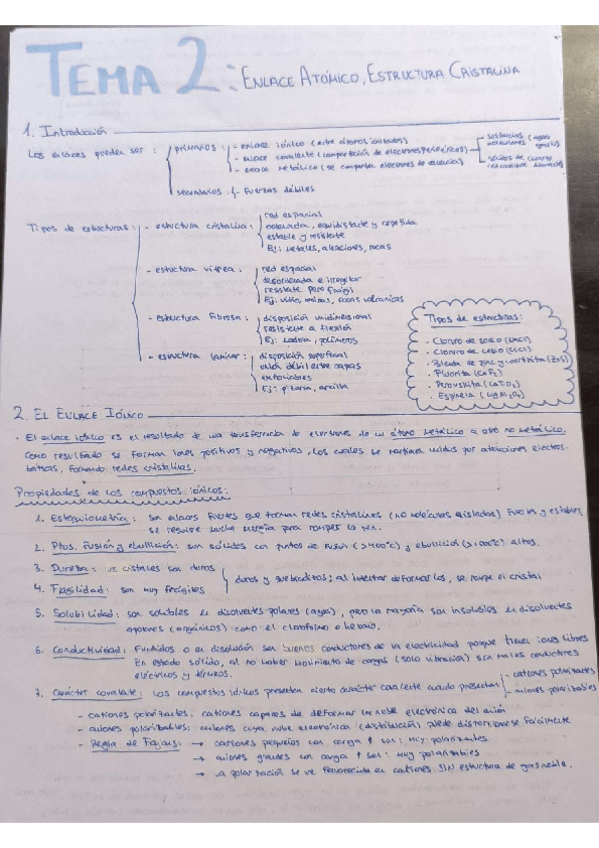 TEMA 2: ENLACE ATÓMICO, ESTRUCTURA CRISTALINA
1. Introducción
Los enlaces pueden ser: primarios: - enlace iónico (entre átomos ionizados)
- enlace covalente (compartición de electrones periféricos) - sustancias moleculares (agua
- sólidos de cuarzo
- enlace metálico (se comparten electrones de valencia)
secundarios: - Fuerzas débiles
Tipos de estructuras: - estructura cristalina: red espacial
ordenada, equidistante y repetida
estable y resistente
Ej: metales, aleaciones, rocas
- estructura vítrea: red espacial
desordenada e irregular
resistente pero frágil
Ej: vidrio, rocas volcánicas
- estructura fibrosa: disposición unidimensional
resistente a flexión
Ej: madera, polímeros
- estructura laminar: disposición superficial
unión débil entre capas
exfoliables
Ej: pizarra, arcilla
Tipos de estructuras:
· Cloruro de sodio (NaCl)
· Cloruro de cesio (CsCl)
· Blenda de zinc y wurtzita (ZnS)
· Fluorita (CaF₂)
· Perovskita (CaTiO₃)
· Espinela (MgAl₂O₄)
2. EL ENLACE IÓNICO
· El enlace iónico es el resultado de una transferencia de electrones de un átomo metálico a otro no metálico.
Como resultado se forman iones positivos y negativos, los cuales se mantienen unidos por atracciones electros-
táticas, formando redes cristalinas.
Propiedades de los compuestos iónicos:
1. Estequiometría: son enlaces fuertes que forman redes cristalinas (no moléculas aisladas) fuertes y estables,
se requiere mucha energía para romper la
2. Ptos. Fusión y ebullición: son sólidos con puntos de fusión (>400°C) y ebullición altos.
3. Dureza: cristales son duros
4. Fragilidad: son muy frágiles
duros y quebradizos; al intentar deformarlos, se rompe el cristal
5. Solubilidad: son solubles en disolventes polares (agua), pero la mayoría son insolubles en disolventes
apolares (orgánicos) como el cloroformo o hexano.
6. Conductividad: Fundidos o en disolución son buenos conductores de la electricidad porque tienen iones libres
En estado sólido, al no haber movimiento de cargas (solo vibración) son malos conductores
eléctricos y térmicos.
7. Carácter covalente: los compuestos iónicos presentan cierto carácter covalente cuando presentan - cationes polarizantes
- aniones polarizables
- cationes polarizantes: cationes capaces de deformar la nube electrónica del anión
- aniones polarizables: aniones cuya nube electrónica (distribución) puede distorsionarse fácilmente
- Regla de Fajans: → cationes pequeños con carga ↑ son: muy polarizantes
→ aniones grandes con carga ↑ son: muy polarizables
→ la polarización se ve favorecida en cationes SIN estructura de gas noble.